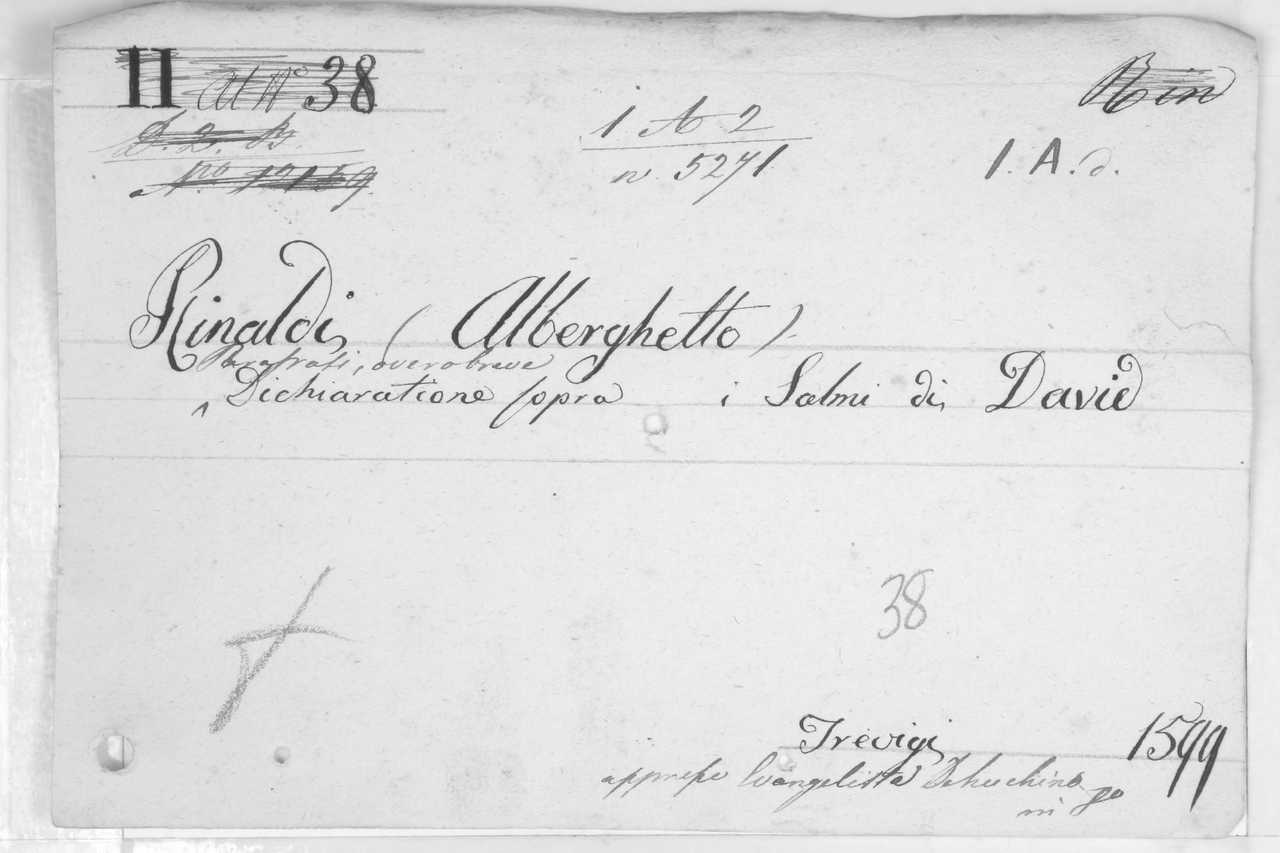 II al N° 38
Rin
D. 2. B.
N.ro 12159
1 A 2
n. 5271.
1. A. d.
Rinaldi (Alberghetto).
Parafrasi, overo breve
Dichiaratione sopra i Salmi di David
38
Trevigi 1599
appresso Evangelista Dehuchino
in 8o